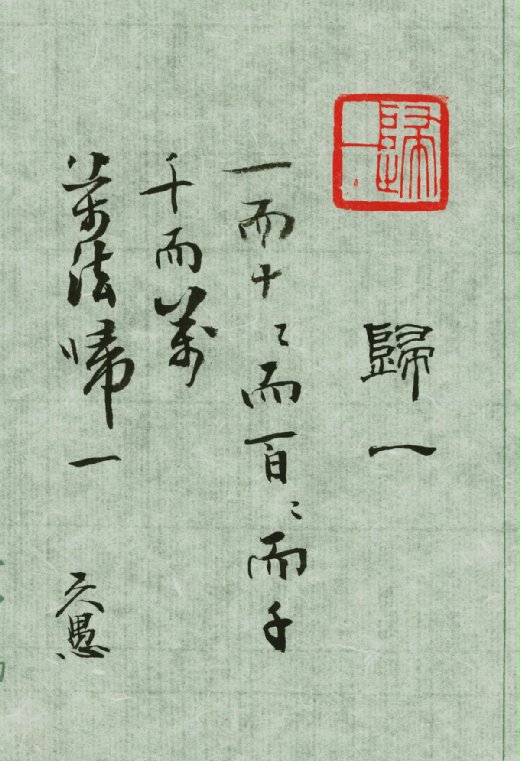 歸一
歸一
一而十〻而百〻而千
千而萬
萬法歸一
久愚